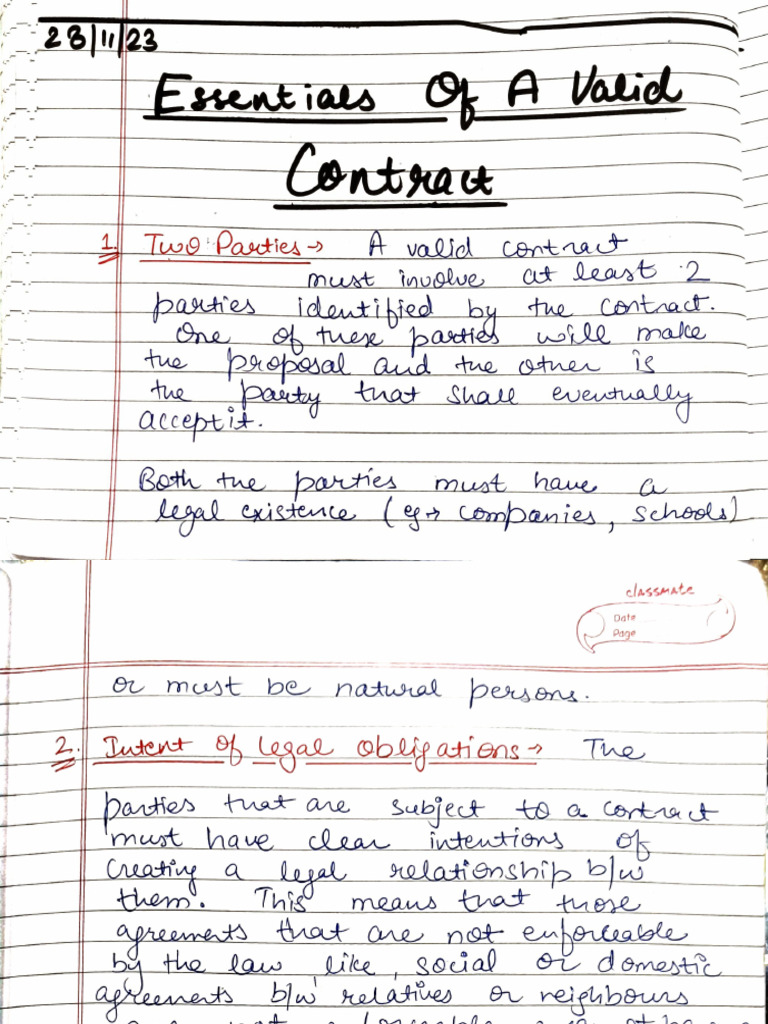 28/11/23
Essentials Of A Valid
Contract
1. Two Parties → A valid contract
must involve at least 2
parties identified by the contract.
One of these parties will make
the proposal and the other is
the party that shall eventually
accept it.
Both the parties must have a
legal existence (eg → companies, schools)
classmate
Date
Page
or must be natural persons.
2. Intent of legal obligations → The
parties that are subject to a contract
must have clear intentions of
creating a legal relationship b/w
them. This means that those
agreements that are not enforceable
by the law like, social or domestic
agreements b/w relatives or neighbours